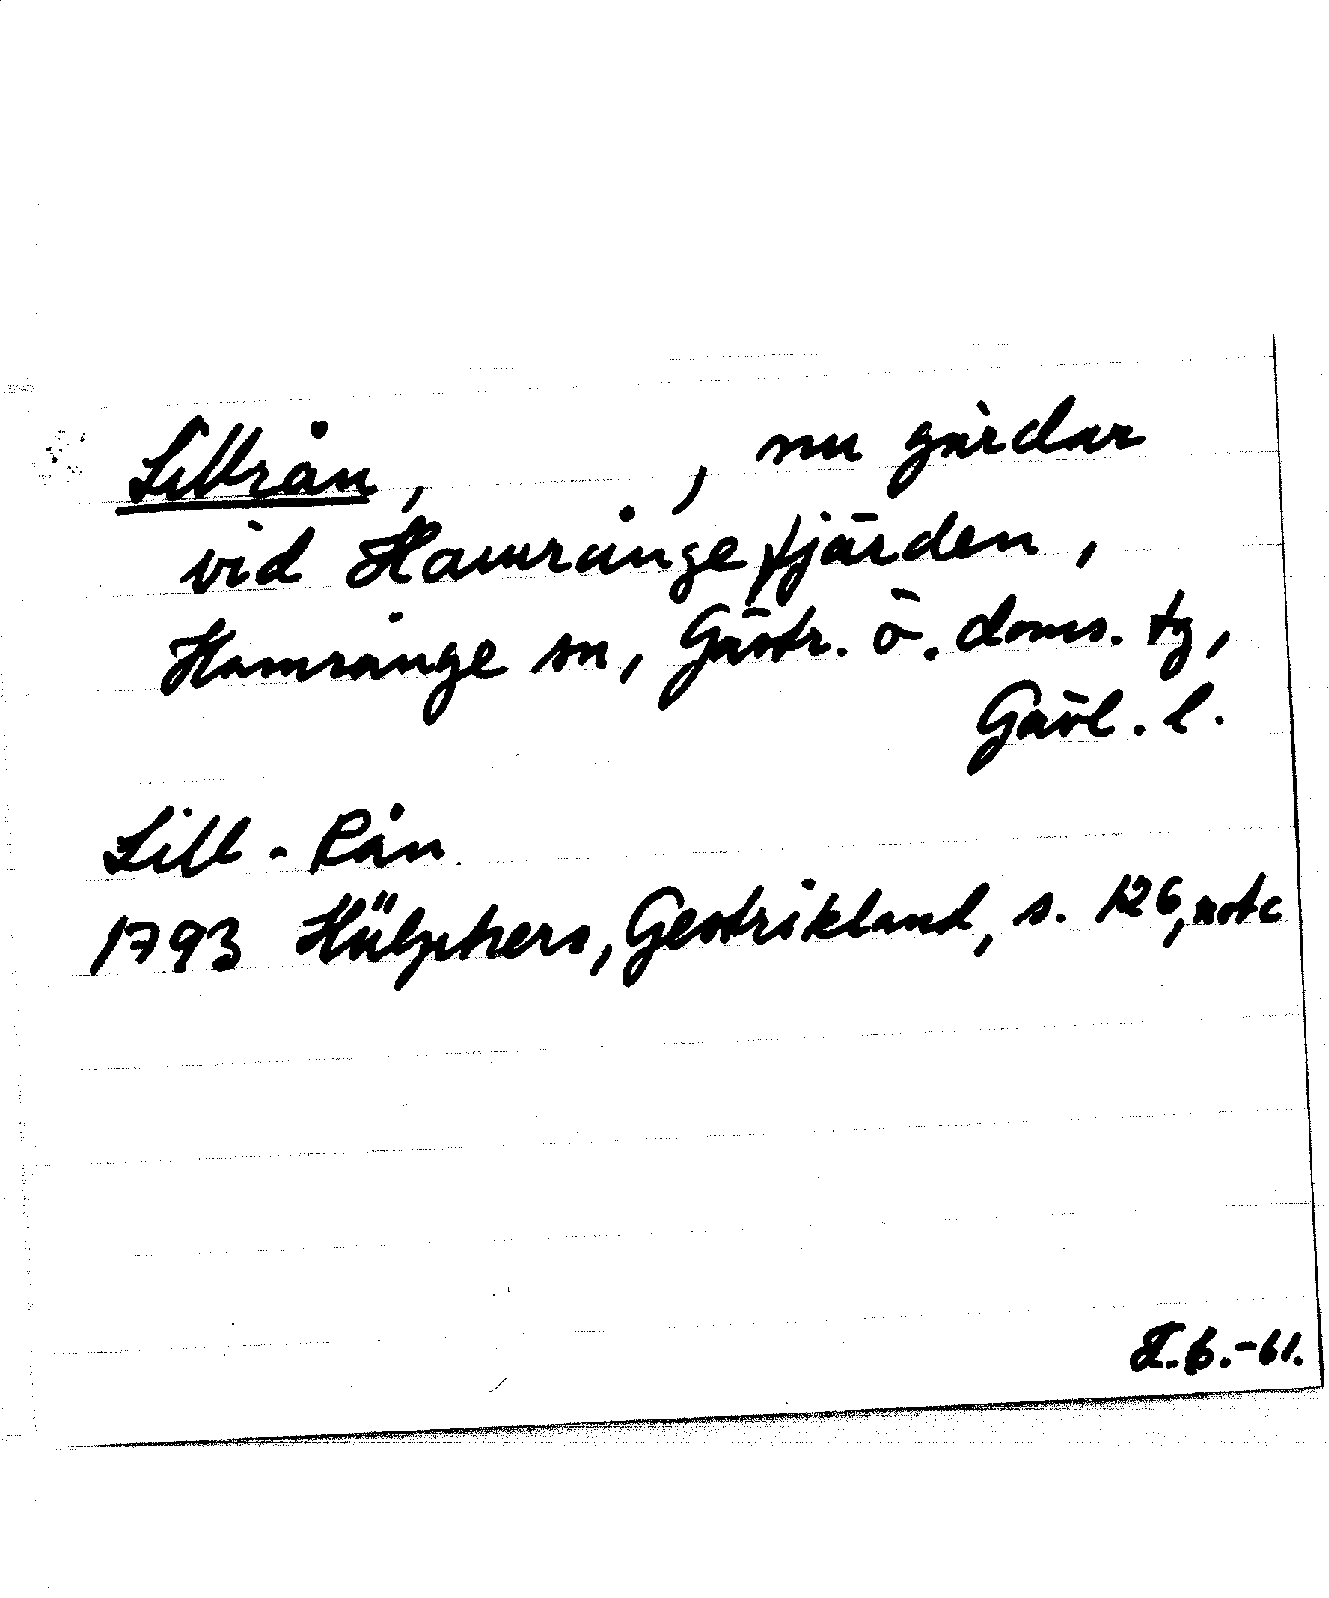 Lillrån, , nu gårdar
vid Hamrångefjärden,
Hamrånge sn, Gästr. ö. doms. tg,
Gävl. l.
Lill-Rån
1793 Hülphers, Gestrikland, s. 126, not c
-61.